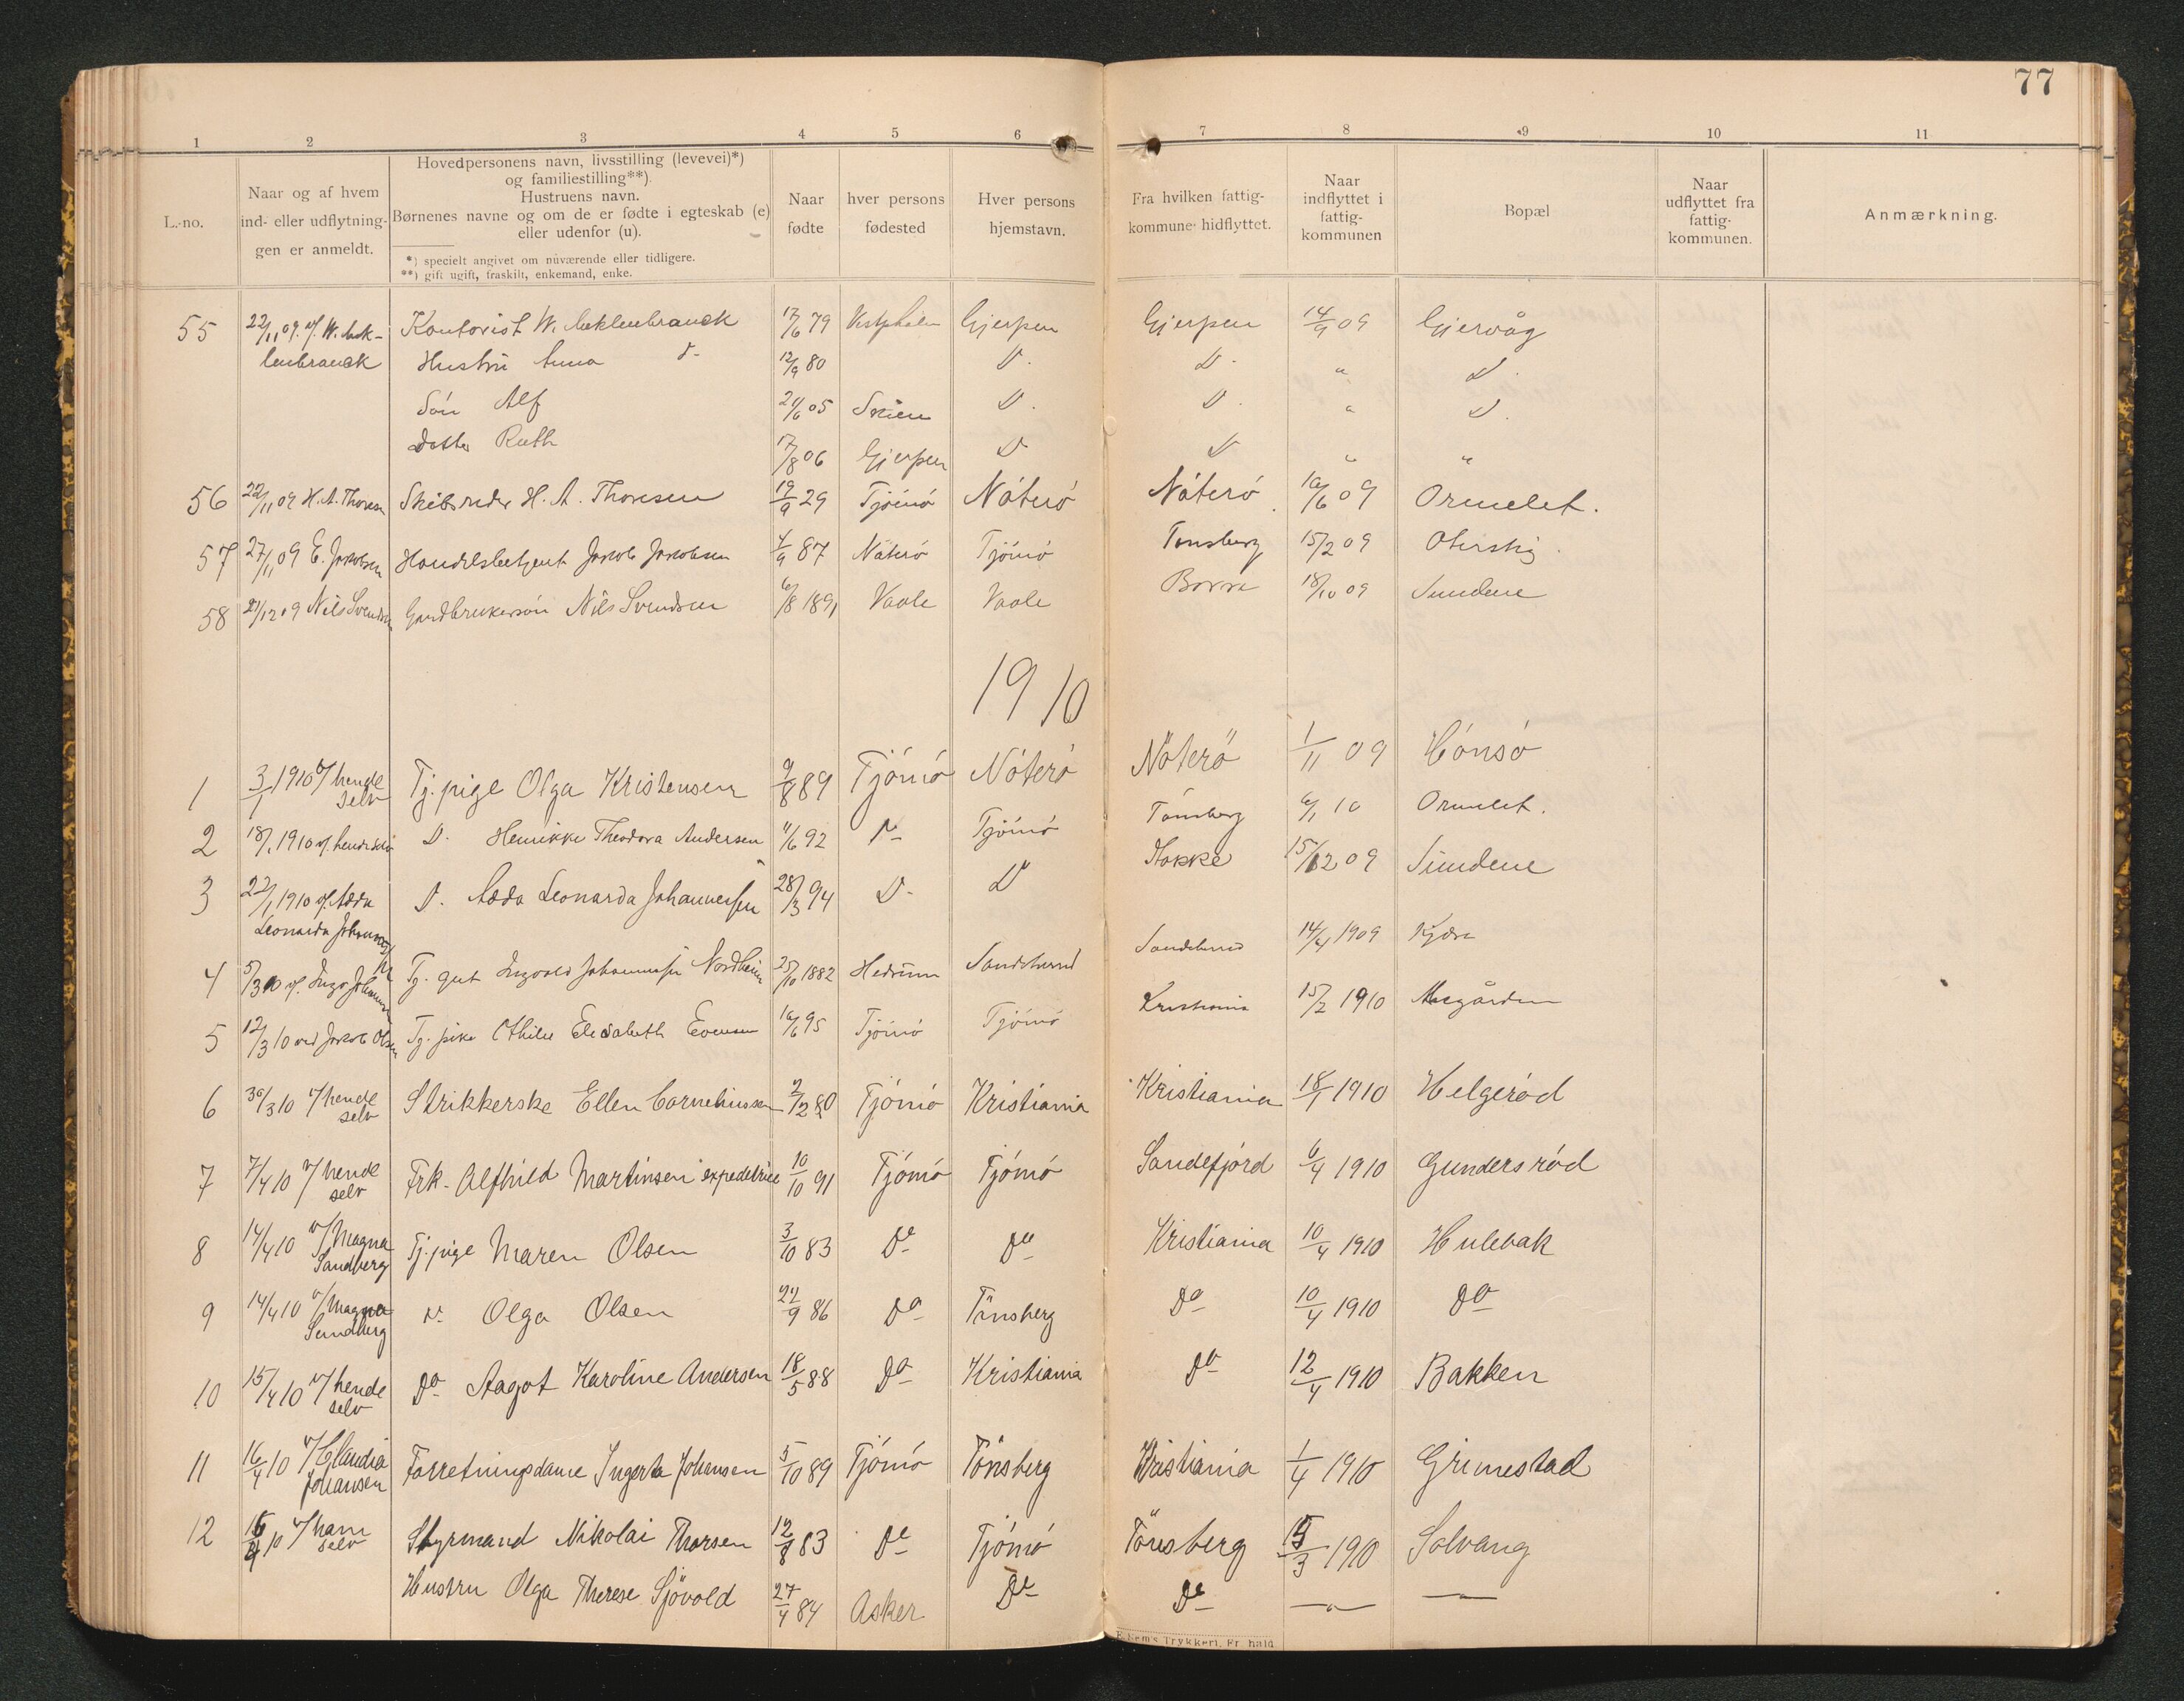 77
1 2 3 4 5 6 7 8 9 10 11
L.-no.
Naar og af hvem
ind- eller udflytnin-
gen er anmeldt.
Hovedpersonens navn, livsstilling (levevei)*)
og familiestilling**).
Hustruens navn.
Børnenes navne og om de er fødte i egteskab (e)
eller udenfor (u).
*) specielt angivet om nuværende eller tidligere.
**) gift ugift, fraskilt, enkemand, enke.
Naar
fødte
hver persons
fødested
Hver persons
hjemstavn.
Fra hvilken fattig-
kommune hidflyttet.
Naar
indflyttet i
fattig-
kommunen
Bopæl
Naar
udflyttet fra
fattig-
kommunen.
Anmærkning.
55 22/11 09. v/. W. Mek- Kontorist W. Meklenbrauck 17/6 79 Vestphalen Gjerpen Gjerpen 14/9 09 Gjervåg
lenbrauck Hustru Anna D- 12/9 80 D. D. " D.
Sön Alf 21/6 05 Skien D. D. " D.
Datter Ruth 7/8 06 Gjerpen D D " "
56 22/11 09 H. A. Thoresen Skibsreder H. A. Thoresen 19/9 29 Tjömö Nöterö Nöterö 10/6 09 Ormelet.
57 27/11 09 E. Jakobsen Handelsbetjent Jakob Jakobsen 4/9 87 Nöterö Tjömö Tønsberg 15/2 09
58 21/12 09 Nils Svendsen Gardbrukersön Nils Svendsen 6/8 1891 Vaale Vaale Borre 18/10 09 Sundene
1910
1 3/1 1910 v/ hende selv Tj. pige Olga Kristensen 9/8 89 Tjömö Nöterö Nöterö 1/11 09 Hönsö
2 18/1 1910 v/. hende selv D. Henrikke Theodora Andersen 11/6 92 D- Tjömö Tönsberg 6/1 10 Ormelet.
3 22/1 1910 v/. Adda D. Adda Leonarda Johannessen 28/3 94 D. D Stokke 15/12 09 Sundene
Leonarda Johannessen
4 5/3 10 v/. Ingv. Johannessen Tj. gut Ingvald Johannessen Nordheim 25/10 1882 Hedrum Sandeherred Sandeherred 14/4 1909
5 12/3 10 ved Jakob Olsen Tj. pike Othilie Elisabeth Evensen 16/6 95 Tjömö Tjömö Kristiania 15/2 1910
6 30/3 10 v/ hende selv Strikkerske Ellen Corneliussen 2/12 80 Tjömö Kristiania Kristiania 18/1 1910 Helgeröd
7 7/4 10 v/ hende selv Frk. Alfhild Martinsen expeditrice 10/10 91 Tjömö Tjömö Sandefjörd 6/4 1910 Gundersröd
8 14/4 10 v/ Magna Sandberg Tj. pige Maren Olsen 3/10 83 Do Do Kristiania 10/4 1910 Hulebak
9 14/4 10 v/ Magna Sandberg D. Olga Olsen 24/9 86 Do Tönsberg Do 10/4 1910 Do
10 15/4 10 v/ hende selv Do Aagot Karoline Andersen 18/5 88 Do Kristiania Do 12/4 1910 Bakken
11 16/4 10 v/ Claudia Johansen Forretningsdame Ingerta Johansen 5/10 89 Tjömö Tönsberg Kristiania 1/4 1910 Grimestad
12 16/4 10 v/ ham selv Styrmand Nikolai Thorsen 12/8 83 Do Tjömö Tönsberg 15/3 1910 Solvang
Hustru Olga Therese Sjövold 27/4 84 Asker Do Do — " — —
E. Sem's Trykkeri, Fr. hald